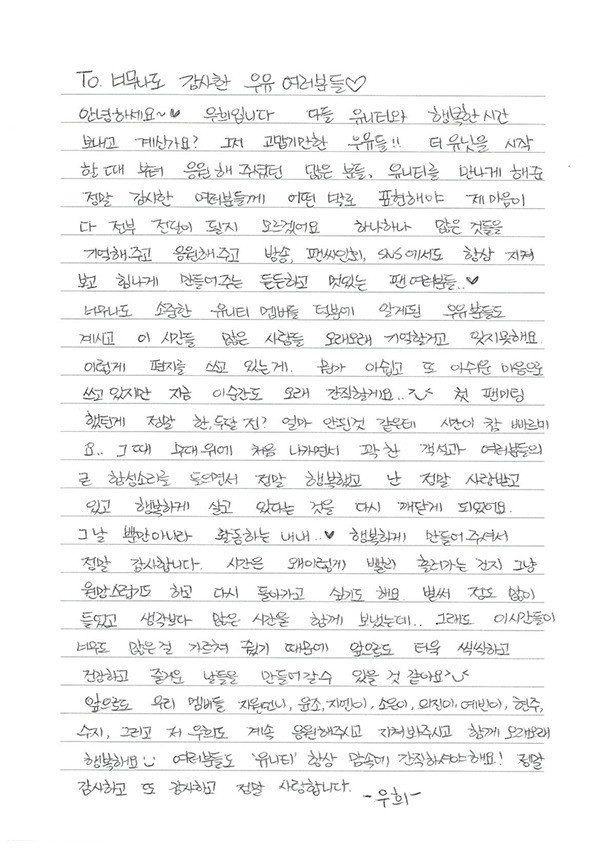 To. 너무나도 감사한 우유 여러분들♡
안녕하세요~♥ 우희입니다 다들 유니티와 행복한 시간
보내고 계신가요? 그저 고맙기만한 우유들!! 더유닛을 시작
할 때 부터 응원해 주셨던 많은 분들, 유니티를 만나게 해준
정말 감사한 여러분들께 어떤 말로 표현해야 제 마음이
다 전부 전달이 될지 모르겠어요 하나하나 많은 것들을
기억해주고 응원해주고 방송, 팬싸인회, SNS에서도 항상 지켜
보고 힘나게 만들어주는 든든하고 멋있는 팬여러분들..♥
너무나도 소중한 유니티 멤버들 덕분에 알게된 우유분들도
계시고 이 시간들 많은 사람들 오래오래 기억할거고 잊지못해요.
이렇게 편지를 쓰고 있는게. 뭔가 아쉽고 또 아쉬운 마음으로
쓰고 있지만 지금 이순간도 오래 간직할게요..? 첫 팬미팅
했던게 정말 한,두달 전? 얼마 안된것 같은데 시간이 참 빠르네
요.. 그 때 무대 위에 처음 나가면서 꽉 찬 객석과 여러분들의
큰 함성소리를 들으면서 정말 행복했고 난 정말 사랑받고
있고 행복하게 살고 있다는 것을 다시 깨닫게 되었어요.
그날 뿐만아니라 활동하는 내내..♥ 행복하게 만들어 주셔서
정말 감사합니다. 시간은 왜이렇게 빨리 흘러가는 건지 그냥
원망스럽기도 하고 다시 돌아가고 싶기도 해요 벌써 정도 많이
들었고 생각보다 많은 시간을 함께 보냈는데.. 그래도 이시간들이
너무도 많은걸 가르쳐 줬기 때문에 앞으로도 더욱 씩씩하고
건강하고 즐거운 날들을 만들어갈수 있을 것 같아요?
앞으로도 우리 멤버들 지원언니, 윤조, 지엔이, 소은이, 의진이, 예빈이, 현주,
수지, 그리고 저 우희도 계속 응원해주시고 지켜봐주시고 함께 오래오래
행복해요 여러분들도 '유니티' 항상 맘속에 간직하셔야해요! 정말
감사하고 또 감사하고 정말 사랑합니다.
-우희-